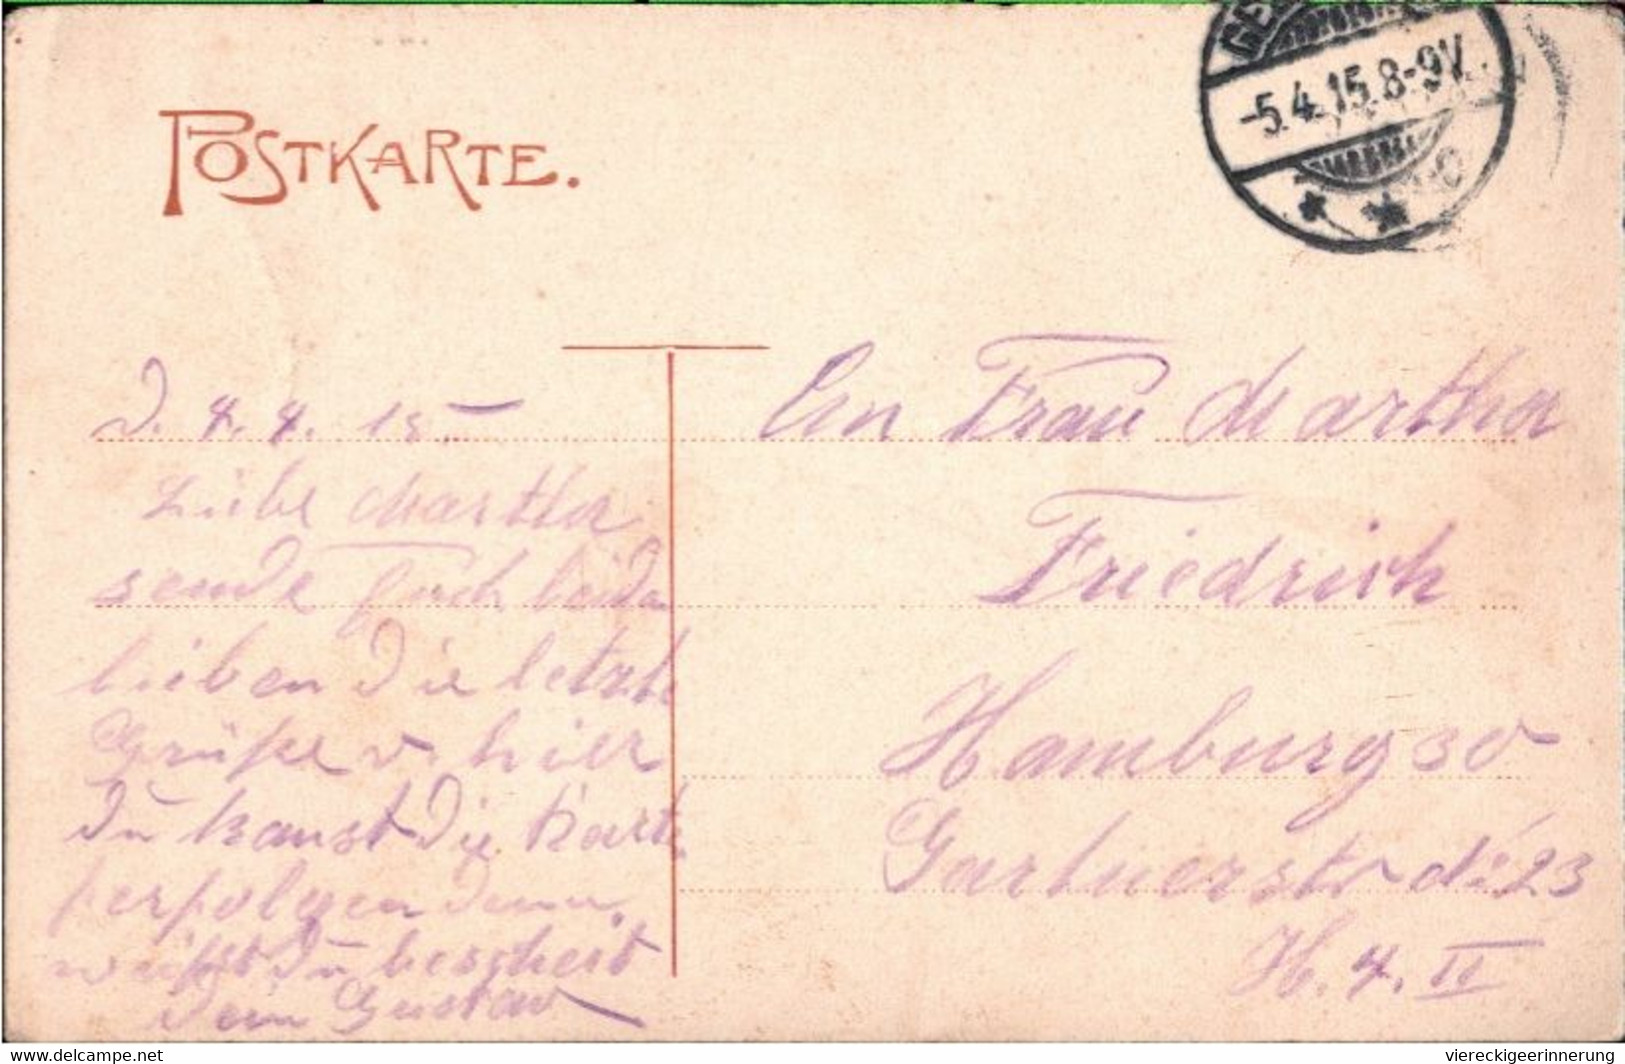 POSTKARTE.
-5.4.15.8-9V.
D. 4. 4. 15
Liebe Martha
sende Euch beide
lieben die letzte
Grüße v. hier
du kanst die Kart
ferfolgen denn
weißt du bescheit
Dein Gustav
An Frau Martha
Friedrich
Hamburg 30
Gartnerstr 123
H. 4. II
www.delcampe.net
viereckigeerinnerung